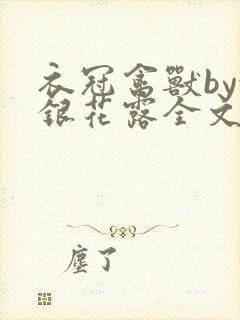 衣冠禽獸by
銀花露全文
塵了